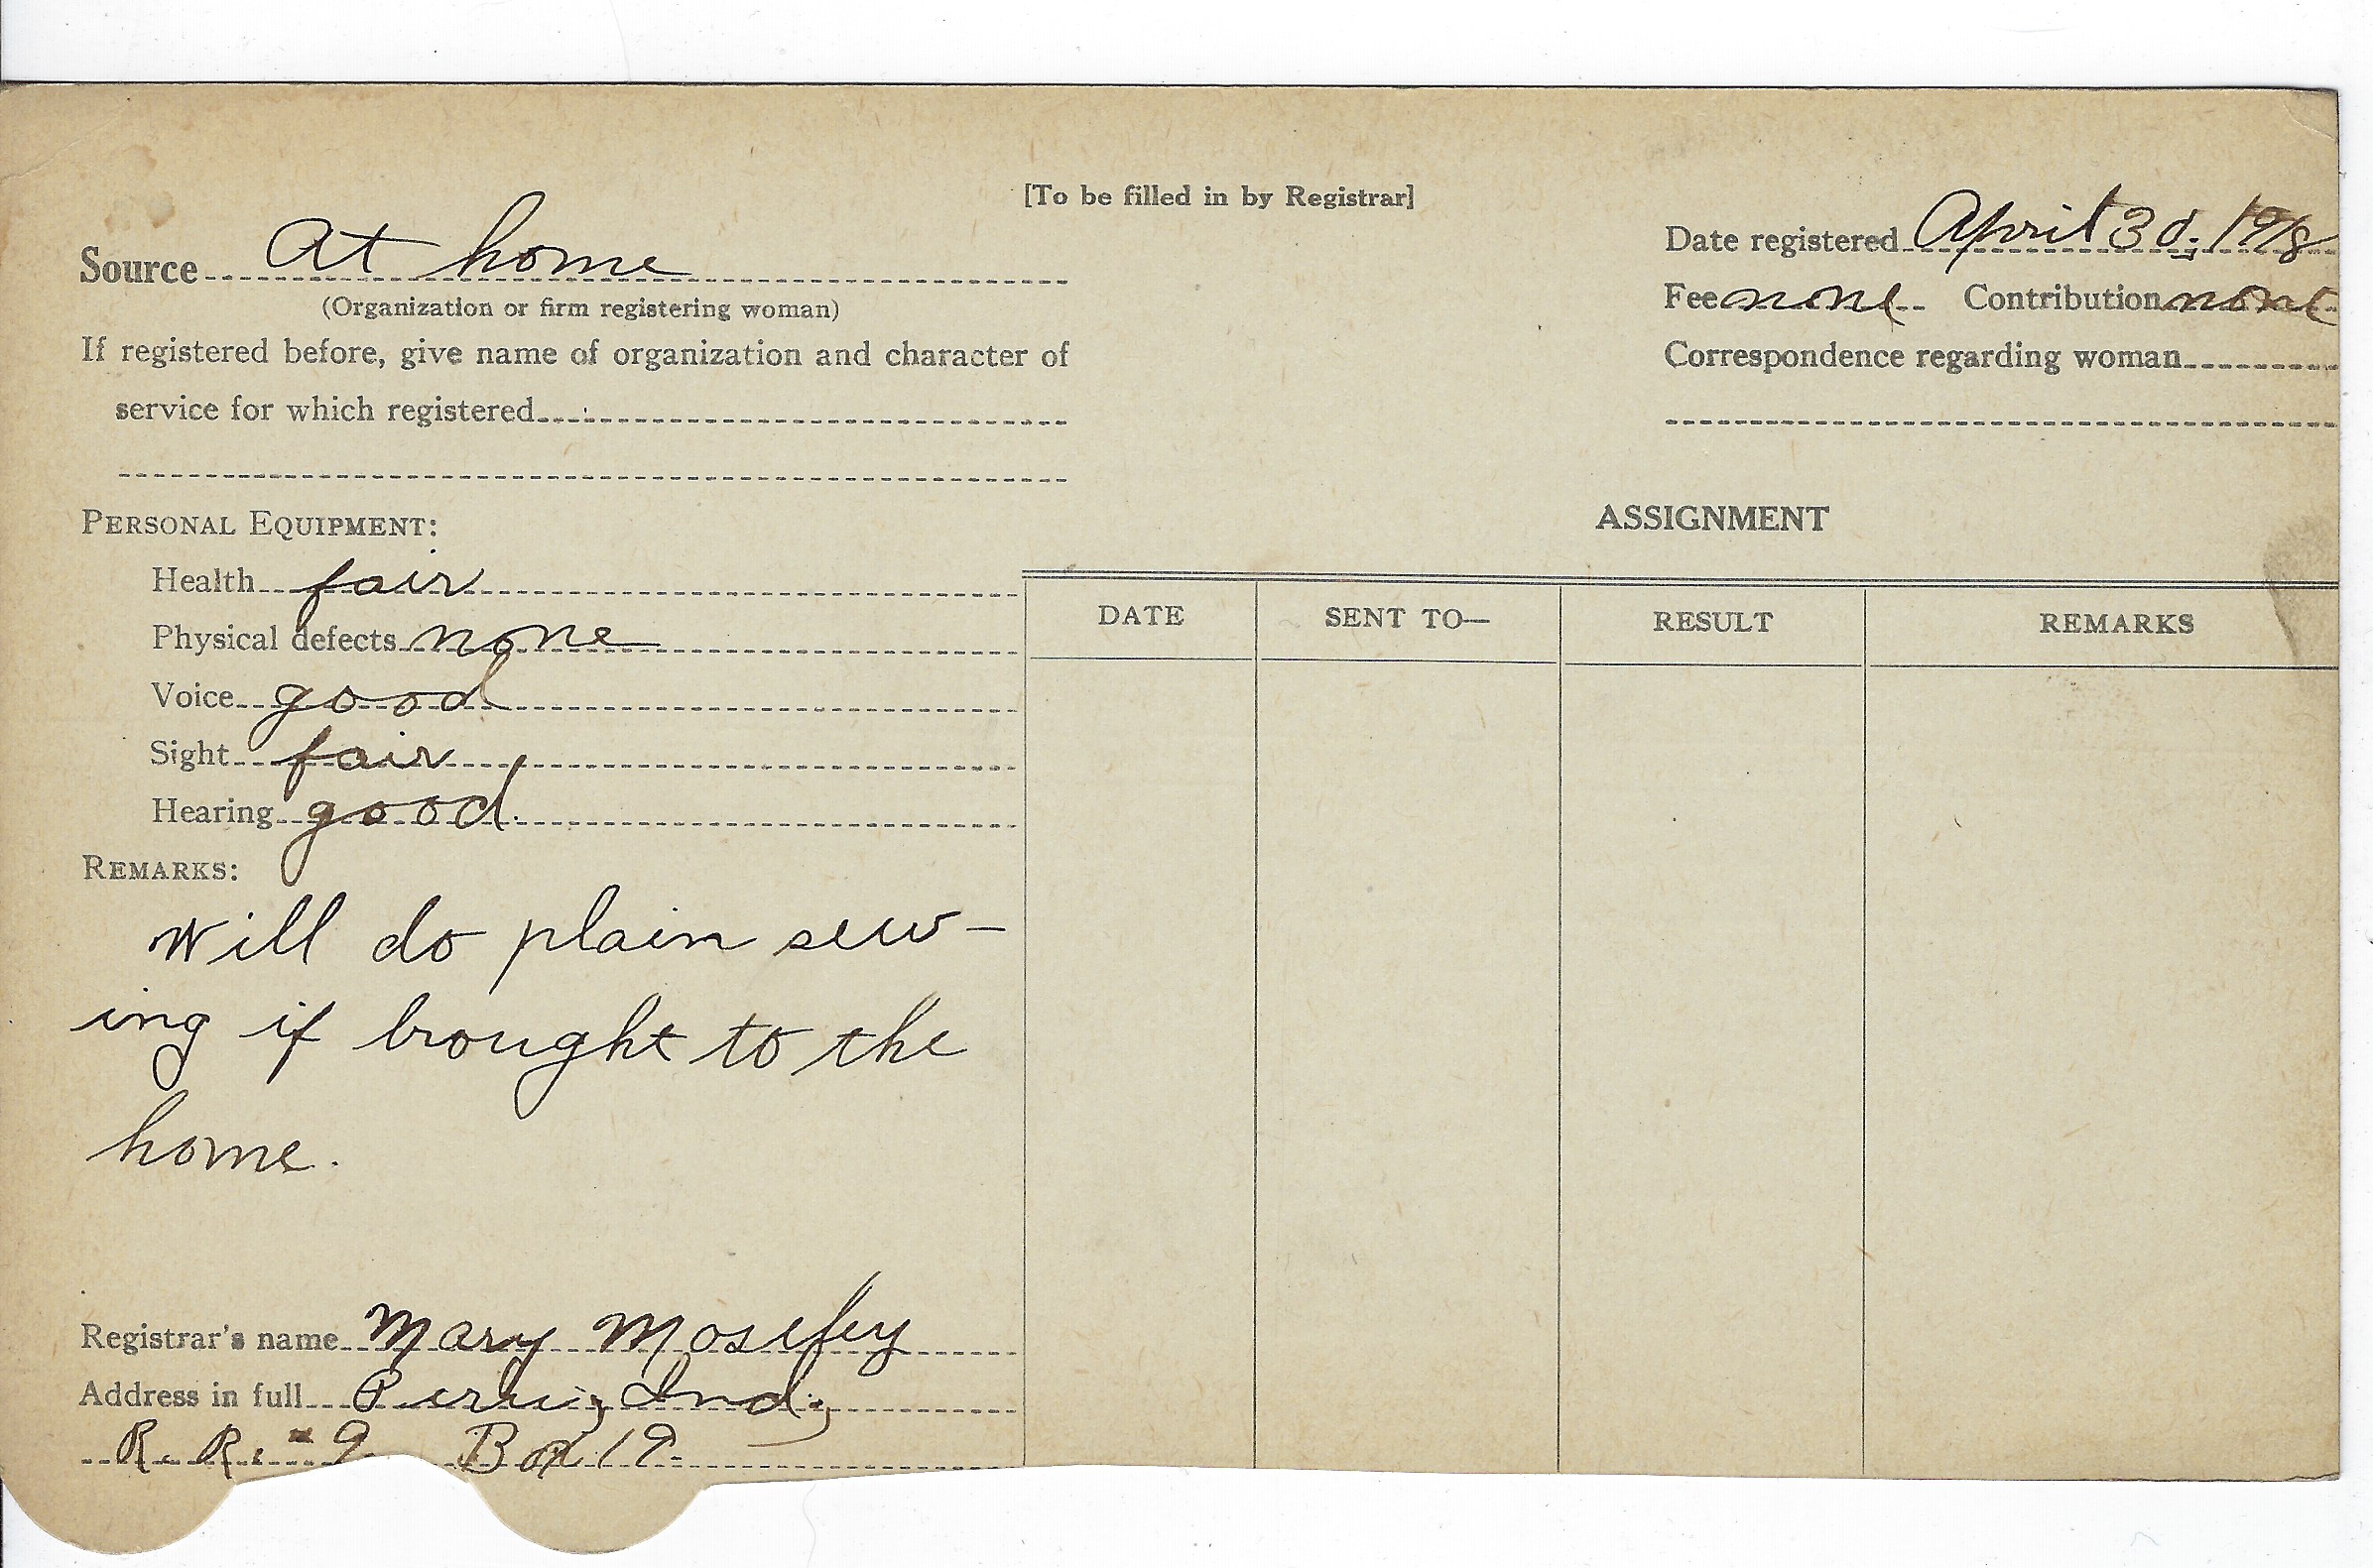 [To be filled in by Registrar]
Source At home
(Organization or firm registering woman)
If registered before, give name of organization and character of
service for which registered
PERSONAL EQUIPMENT:
Health fair
Physical defects none
Voice good
Sight fair
Hearing good.
REMARKS:
Will do plain sew-
ing if brought to the
home.
Registrar's name Mary Moseley
Address in full Peru, Ind.,
R. R. = 9 Box 19.
Date registered April 30, 1918
Fee none Contribution none
Correspondence regarding woman
ASSIGNMENT
DATE SENT TO— RESULT REMARKS